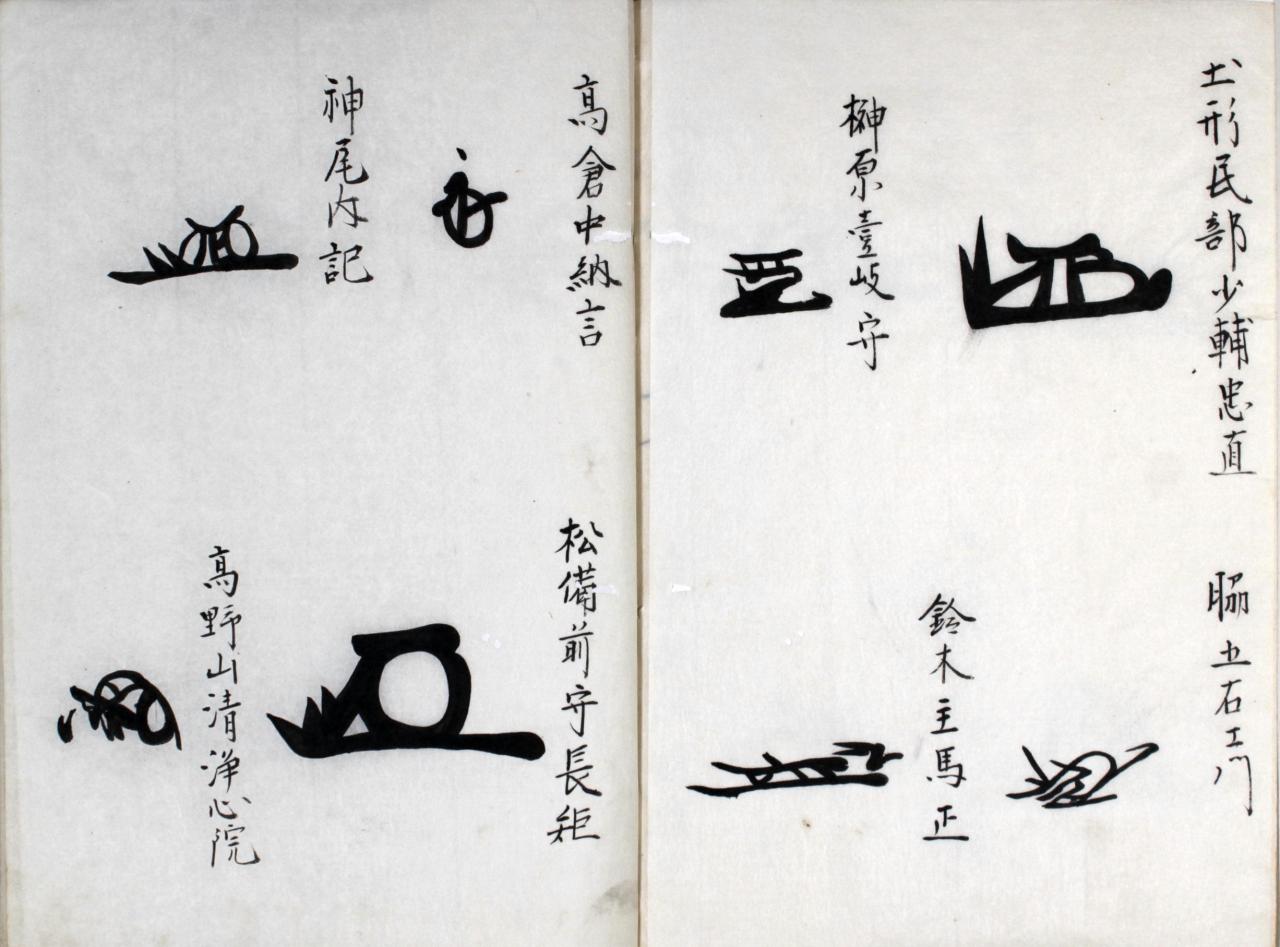 土形民部少輔忠直
脇五右エ門
榊原壹岐守
鈴木主馬正
高倉中納言
松備前守長矩
神尾内記
高野山清浄心院